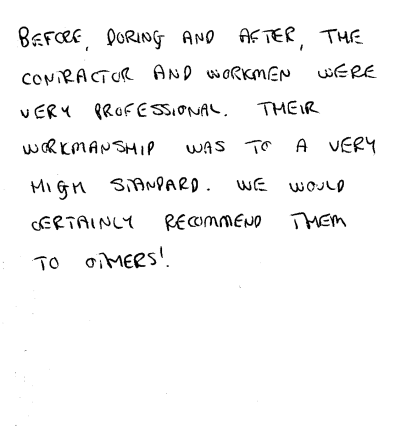 BEFORE, DURING AND AFTER, THE
CONTRACTOR AND WORKMEN WERE
VERY PROFESSIONAL. THEIR
WORKMANSHIP WAS TO A VERY
HIGH STANDARD. WE WOULD
CERTAINLY RECOMMEND THEM
TO OTHERS!